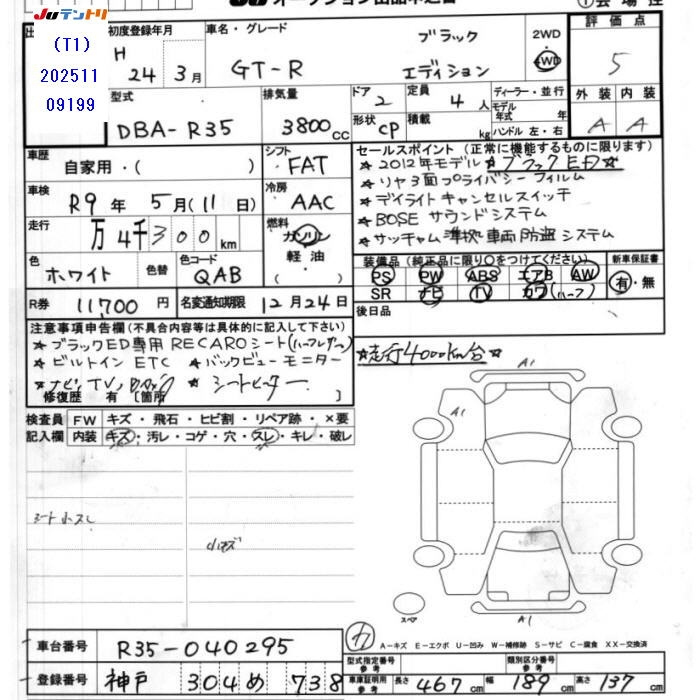 JUテントリ
(T1)
202511
09199
初度登録年月
H
24 年 3 月
車名・グレード
GT-R
ブラック
エディション
2WD
4WD
評価点
5
型式
DBA-R35
排気量
3800 cc
ドア 2
形状 CP
定員 4 人
積載 kg
ディーラー・並行
モデル年式 年
ハンドル 左・右
外装 内装
A A
車歴
自家用・( )
シフト
FAT
車検
R9 年 5 月 (11 日)
冷房
AAC
走行
万 4千 300 km
燃料
ガソリン
軽油
( )
色
ホワイト
色替
色コード
QAB
R券 11,700 円
名変通知期限 12月24日
セールスポイント (正常に機能するものに限ります)
★2012年モデル ★ブラックED★
★リヤ3面プライバシーフィルム
★デイライトキャンセルスイッチ
★BOSE サウンドシステム
★サッチャム準拠車両防盗システム
装備品 (純正品に限り○をつけてください)
PS PW ABS エアB AW
SR ナビ TV カワ(ハーフ)
新車保証書
有・無
後日品
注意事項申告欄(不具合内容等は具体的に記入して下さい)
★ブラックED専用 RECAROシート(ハーフレザー)
★ビルトイン ETC ★バックビューモニター
★シートヒーター
修復歴 有 [箇所 ]
★走行4000km台★
検査員記入欄
FW キズ・飛石・ヒビ割・リペア跡・×要
内装 キズ・汚レ・コゲ・穴・スレ・キレ・破レ
シート小スレ
小キズ
A1
A1
A1
スペア
A-キズ E-エクボ U-凹み W-補修跡 S-サビ C-腐食 XX-交換済
車台番号 R35-040295
登録番号 神戸 304 め 738
型式指定番号 参考
類別区分番号 参考
車庫証明用 参考
長さ 467 cm 幅 189 cm 高さ 137 cm